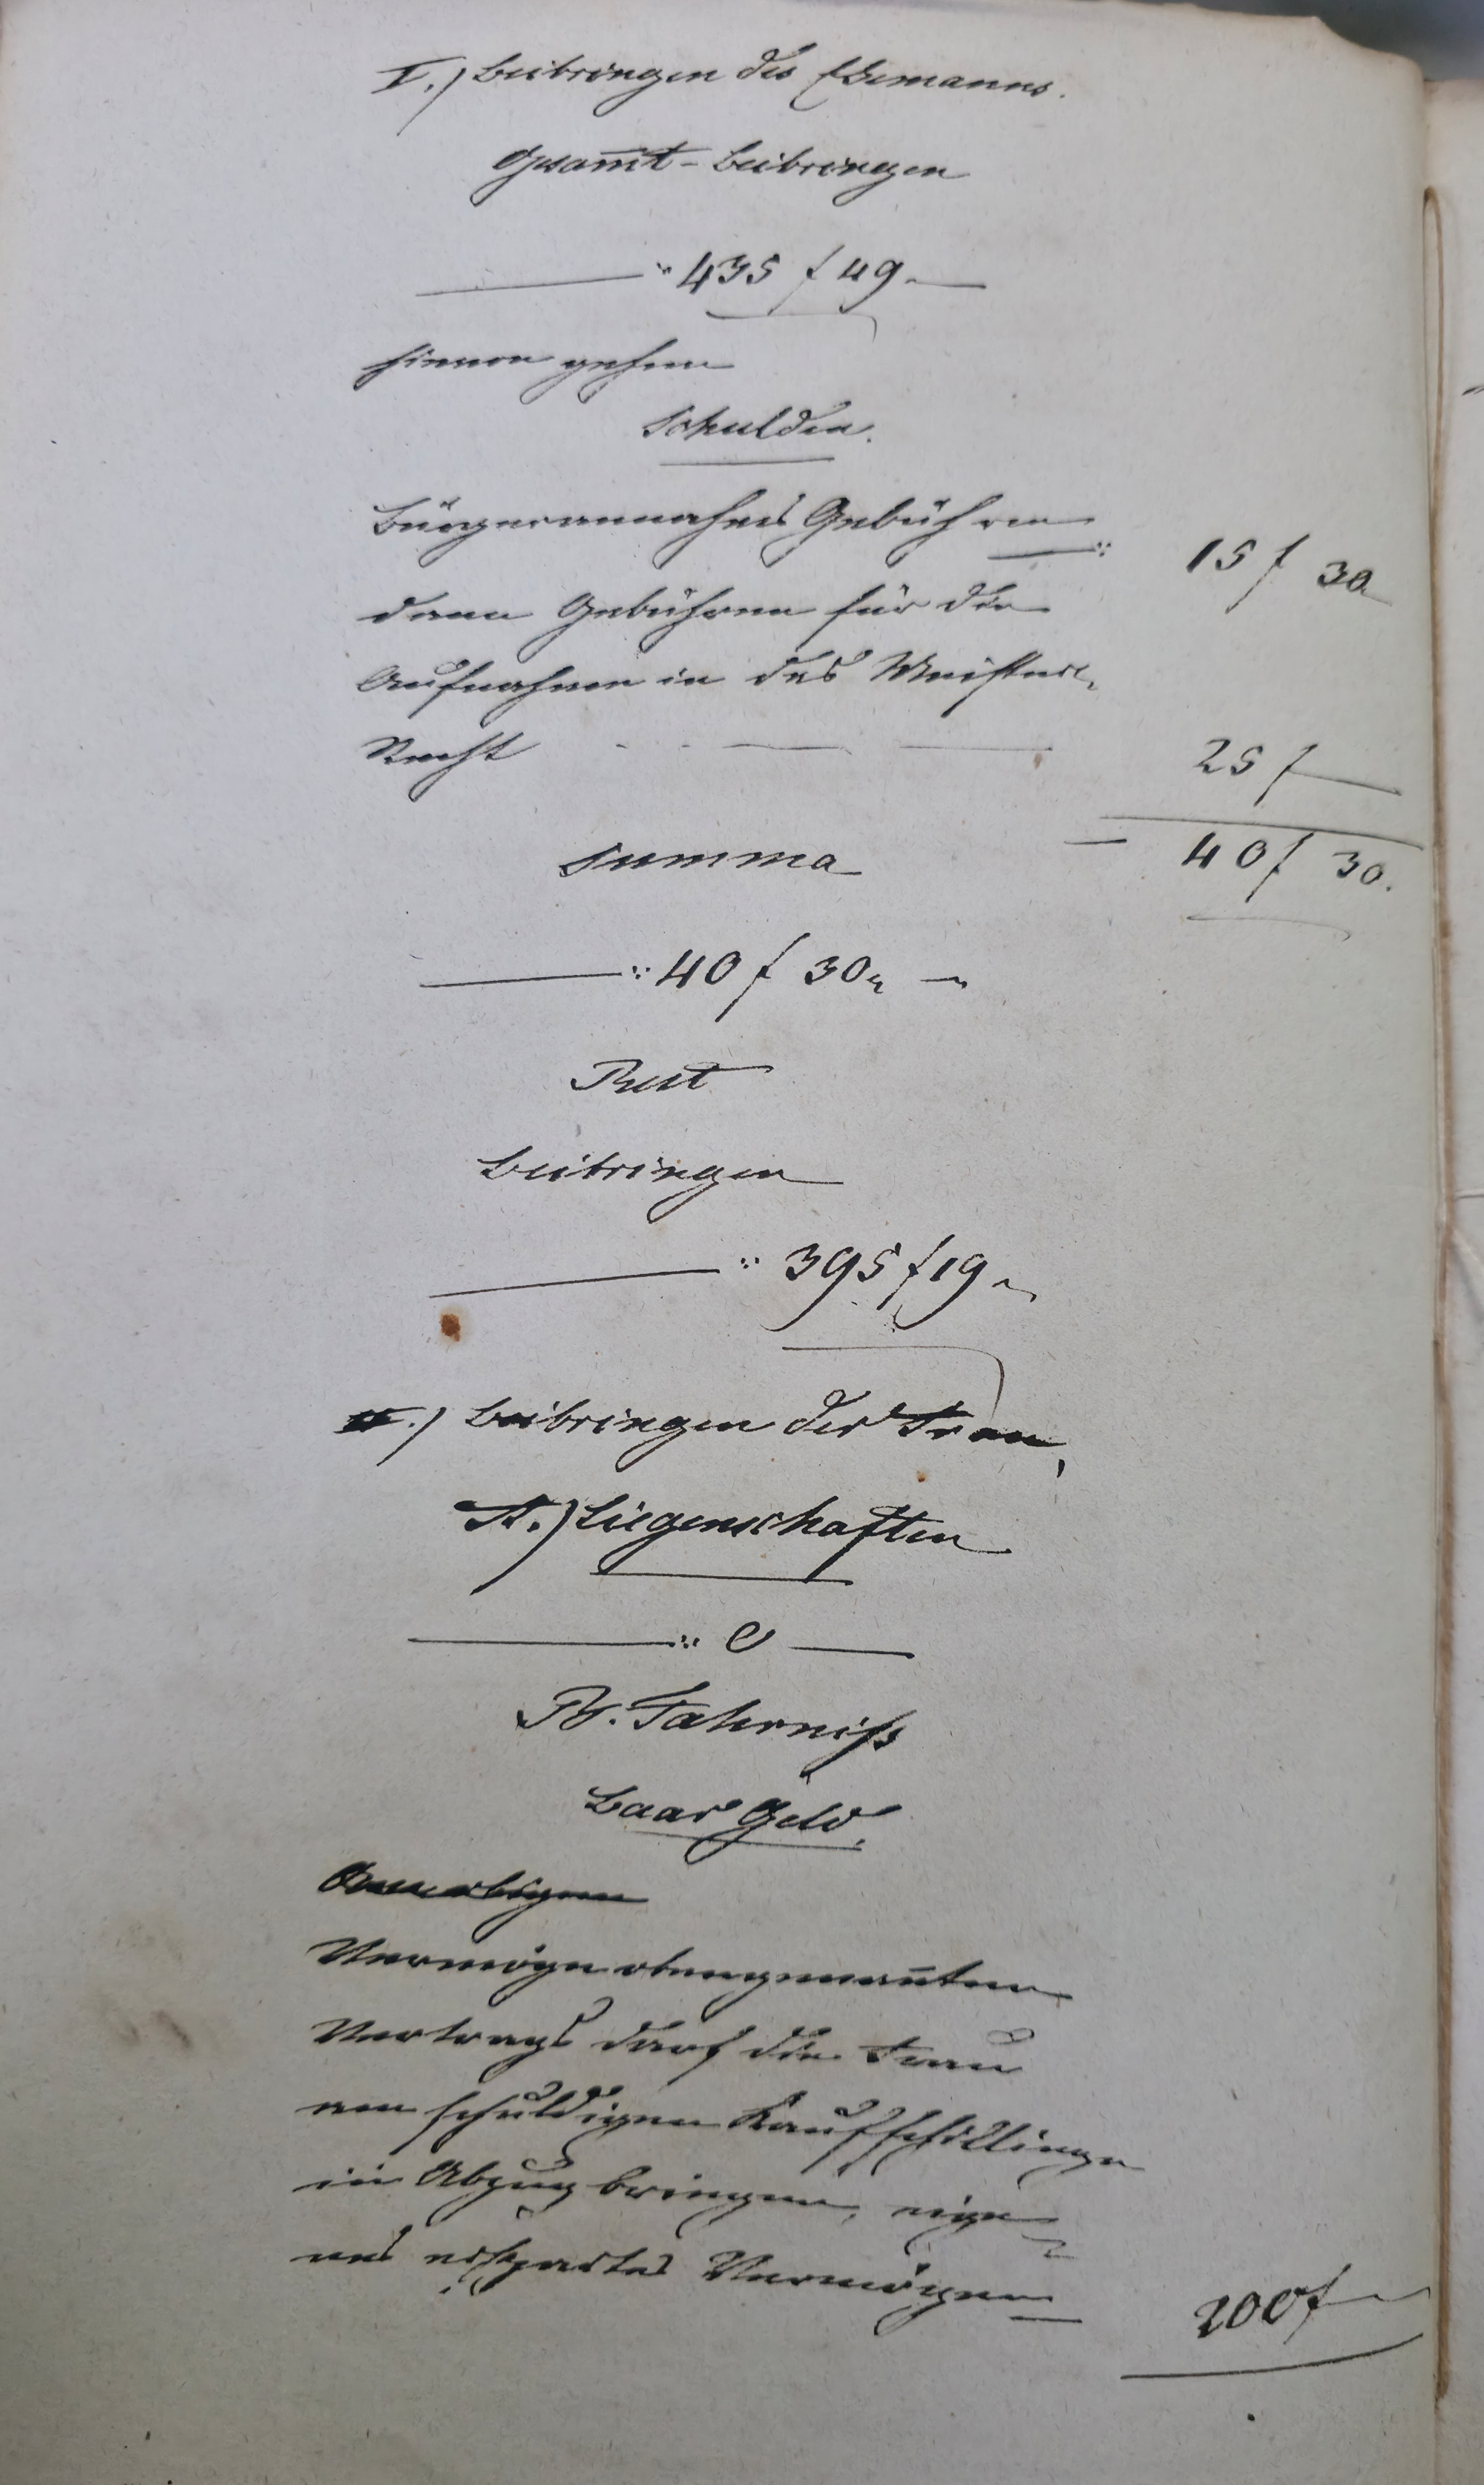 I.) Beibringen des Ehemanns.
Gesam̅t-Beibringen
" 435 f 49.
hievon gehen
Schulden.
Bürgerannahms Gebühren
15 f 30
dann Gebühren für die
Aufnahme in das Meister-
Recht
25 f
Summa
40 f 30.
40 f 30
Rest
Beibringen
395 f 19
II.) Beibringen der Frau,
A.) Liegenschaften
0
B. Fahrniß
Baar Geld.
Vermöge obengenan̅ten
Vertrags darf die Frau
am schuldigen Kaufschillinge
in Abzug bringen, eige-
nes erspartes Vermögen
200 f